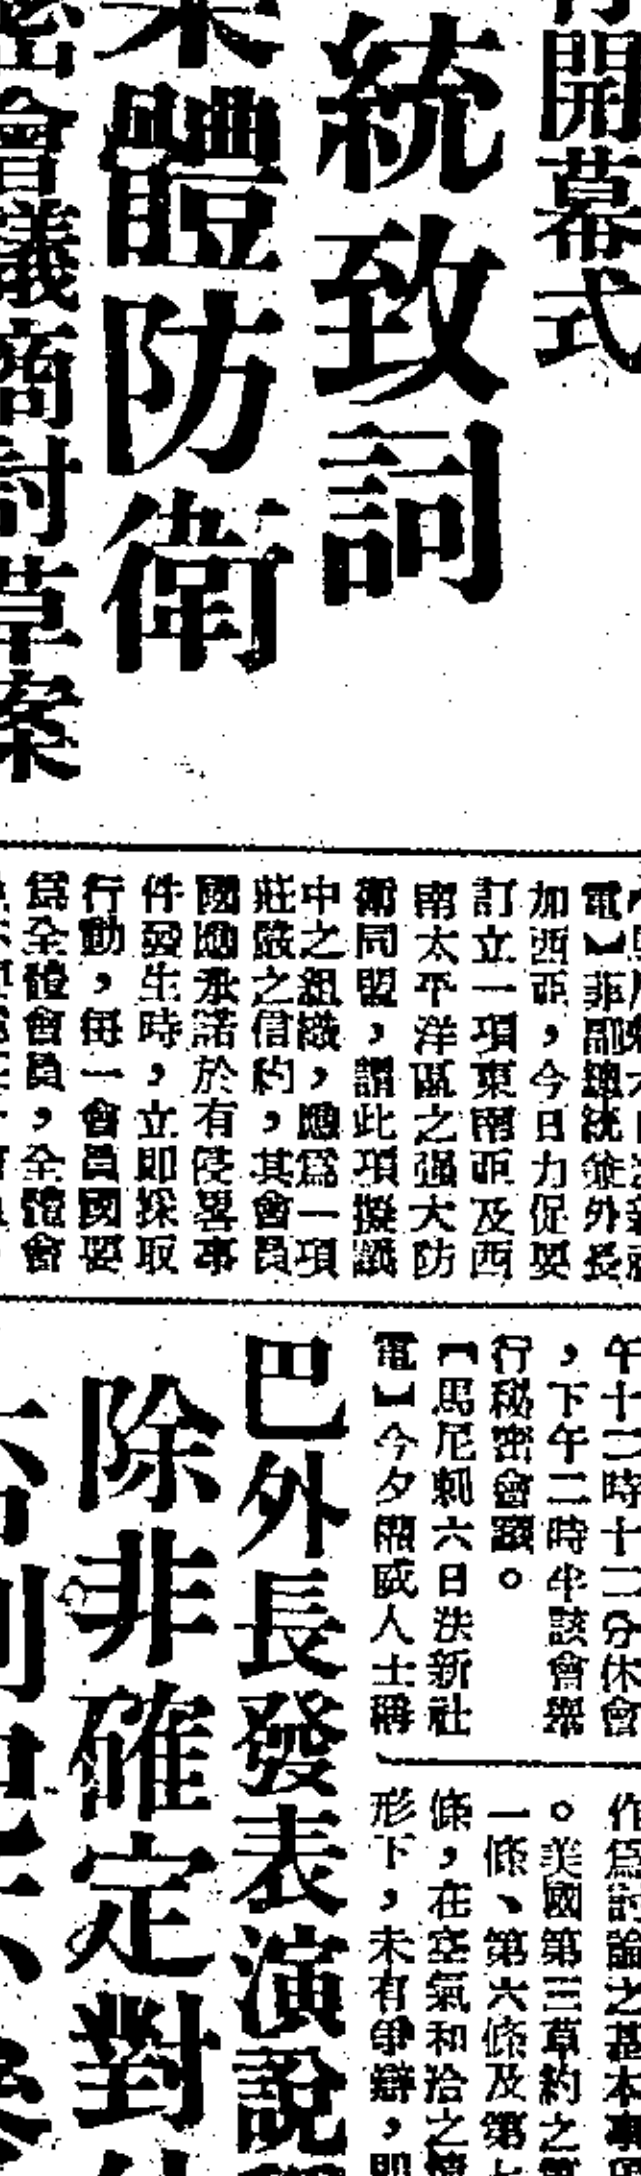 開幕式
統致詞
體防衛
密會議商討草案
電】菲副總統兼外長
加西亞，今日力促要
訂立一項東南亞及西
南太平洋區之强大防
衛同盟，謂此項擬議
中之組織，應爲一項
莊嚴之信約，其會員
國應承諾於有侵畧事
件發生時，立即採取
行動，每一會員國要
爲全體會員，全體會
午十二時十二分休會
，下午二時半該會舉
行秘密會議。
【馬尼剌六日法新社
電】今夕消息人士稱
作爲討論之基本
。美國第三草約之第
一條、第六條及第七
條，在空氣和洽之情
形下，未有爭辯，即
巴外長發表演說
除非確定對